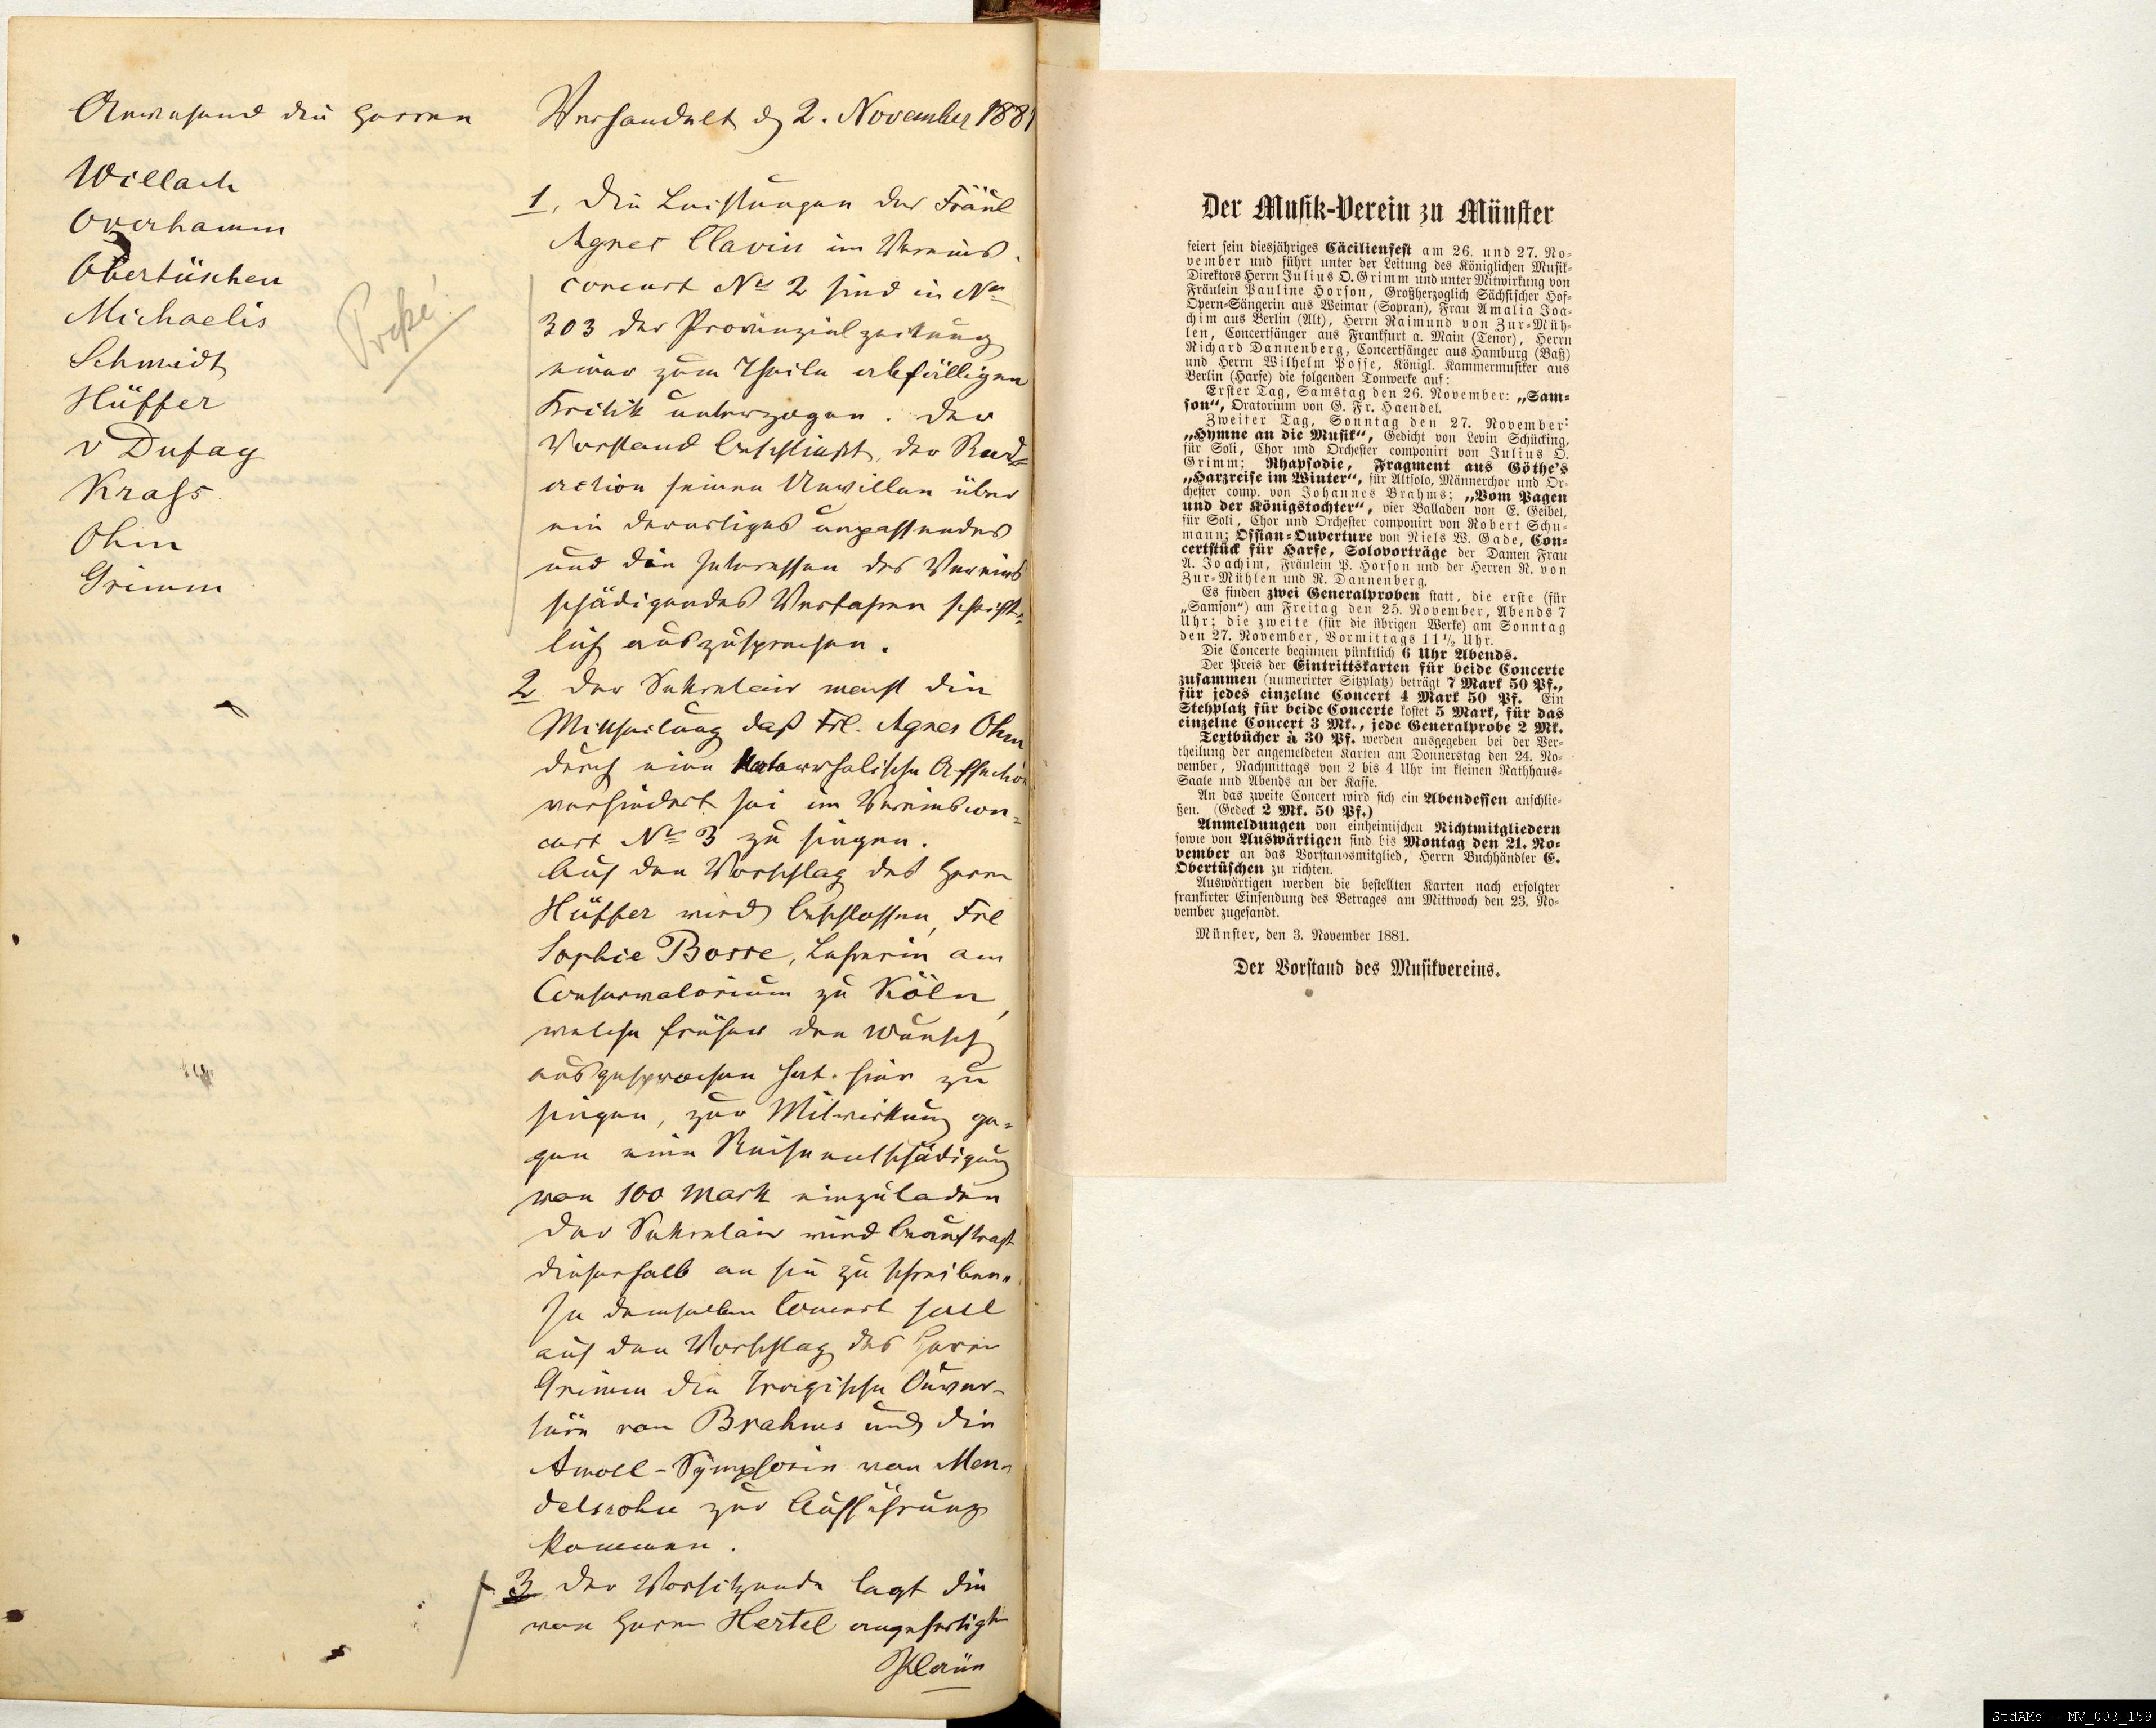 Anwesend die Herren
Willach
Overhamm
Obertüschen
Michaelis
Schmidt
Hüffer
v Dufay
Krass
Ohm
Grimm
Verhandelt d 2. November 1881
1, Die Leistungen der Fräul
Agnes Clavin im Vereins-
concert No 2 sind in No
303 der Provinzialzeitung
einer zum Theile abfälligen
Kritik unterzogen. Der
Vorstand beschließt, der Red=
action seinen Unwillen über
ein derartiges unpassendes
und den Interessen des Vereins
schädigendes Verfahren schrift=
lich auszusprechen.
2 Der Sekretair macht die
Mittheilung daß Frl. Agnes Ohm
durch eine katarrhalische Affection
verhindert sei im Vereinscon=
cert No 3 zu singen.
Auf den Vorschlag des Herrn
Hüffer wird beschlossen, Frl
Sophie Bosse, Lehrerin am
Conservatorium zu Köln,
welche früher den Wunsch
ausgesprochen hat hier zu
singen, zur Mitwirkung ge=
gen eine Reiseentschädigung
von 100 Mark einzuladen
Der Sekretair wird beauftragt
dieserhalb an sie zu schreiben.
In demselben Concert soll
auf den Vorschlag des Herrn
Grimm die Tragische Ouver-
türe von Brahms und die
Amoll-Symphonie von Men=
delssohn zur Aufführung
kommen.
3 Der Vorsitzende legt die
von Herrn Hertel angefertigten
Pläne
Der Musik-Verein zu Münster
feiert sein diesjähriges Cäcilienfest am 26. und 27. No=
vember und führt unter der Leitung des Königlichen Musik=
Direktors Herrn Julius O. Grimm und unter Mitwirkung von
Fräulein Pauline Horson, Großherzoglich Sächsischer Hof=
Opern=Sängerin aus Weimar (Sopran), Frau Amalia Joa=
chim aus Berlin (Alt), Herrn Raimund von Zur=Müh=
len, Concertsänger aus Frankfurt a. Main (Tenor), Herrn
Richard Dannenberg, Concertsänger aus Hamburg (Baß)
und Herrn Wilhelm Posse, Königl. Kammermusiker aus
Berlin (Harfe) die folgenden Tonwerke auf:
Erster Tag, Samstag den 26. November: „Sam=
son“, Oratorium von G. Fr. Haendel.
Zweiter Tag, Sonntag den 27. November:
„Hymne an die Musik“, Gedicht von Levin Schücking,
für Soli, Chor und Orchester componirt von Julius O.
Grimm; Rhapsodie, Fragment aus Göthe's
„Harzreise im Winter“, für Altsolo, Männerchor und Or=
chester comp. von Johannes Brahms; „Vom Pagen
und der Königstochter“, vier Balladen von E. Geibel,
für Soli, Chor und Orchester componirt von Robert Schu=
mann; Ossian=Ouverture von Niels W. Gade, Con=
certstück für Harfe, Solovorträge der Damen Frau
A. Joachim, Fräulein P. Horson und der Herren R. von
Zur=Mühlen und R. Dannenberg.
Es finden zwei Generalproben statt, die erste (für
„Samson“) am Freitag den 25. November, Abends 7
Uhr; die zweite (für die übrigen Werke) am Sonntag
den 27. November, Vormittags 11½ Uhr.
Die Concerte beginnen pünktlich 6 Uhr Abends.
Der Preis der Eintrittskarten für beide Concerte
zusammen (numerirter Sitzplatz) beträgt 7 Mark 50 Pf.,
für jedes einzelne Concert 4 Mark 50 Pf. Ein
Stehplatz für beide Concerte kostet 5 Mark, für das
einzelne Concert 3 Mk., jede Generalprobe 2 Mk.
Textbücher à 30 Pf. werden ausgegeben bei der Ver=
theilung der angemeldeten Karten am Donnerstag den 24. No=
vember, Nachmittags von 2 bis 4 Uhr im kleinen Rathhaus=
Saale und Abends an der Kasse.
An das zweite Concert wird sich ein Abendessen anschlie=
ßen. (Gedeck 2 Mk. 50 Pf.)
Anmeldungen von einheimischen Nichtmitgliedern
sowie von Auswärtigen sind bis Montag den 21. No=
vember an das Vorstandsmitglied, Herrn Buchhändler E.
Obertüschen zu richten.
Auswärtigen werden die bestellten Karten nach erfolgter
frankirter Einsendung des Betrages am Mittwoch den 23. No=
vember zugesandt.
Münster, den 3. November 1881.
Der Vorstand des Musikvereins.
StdAMs - MV_003_159